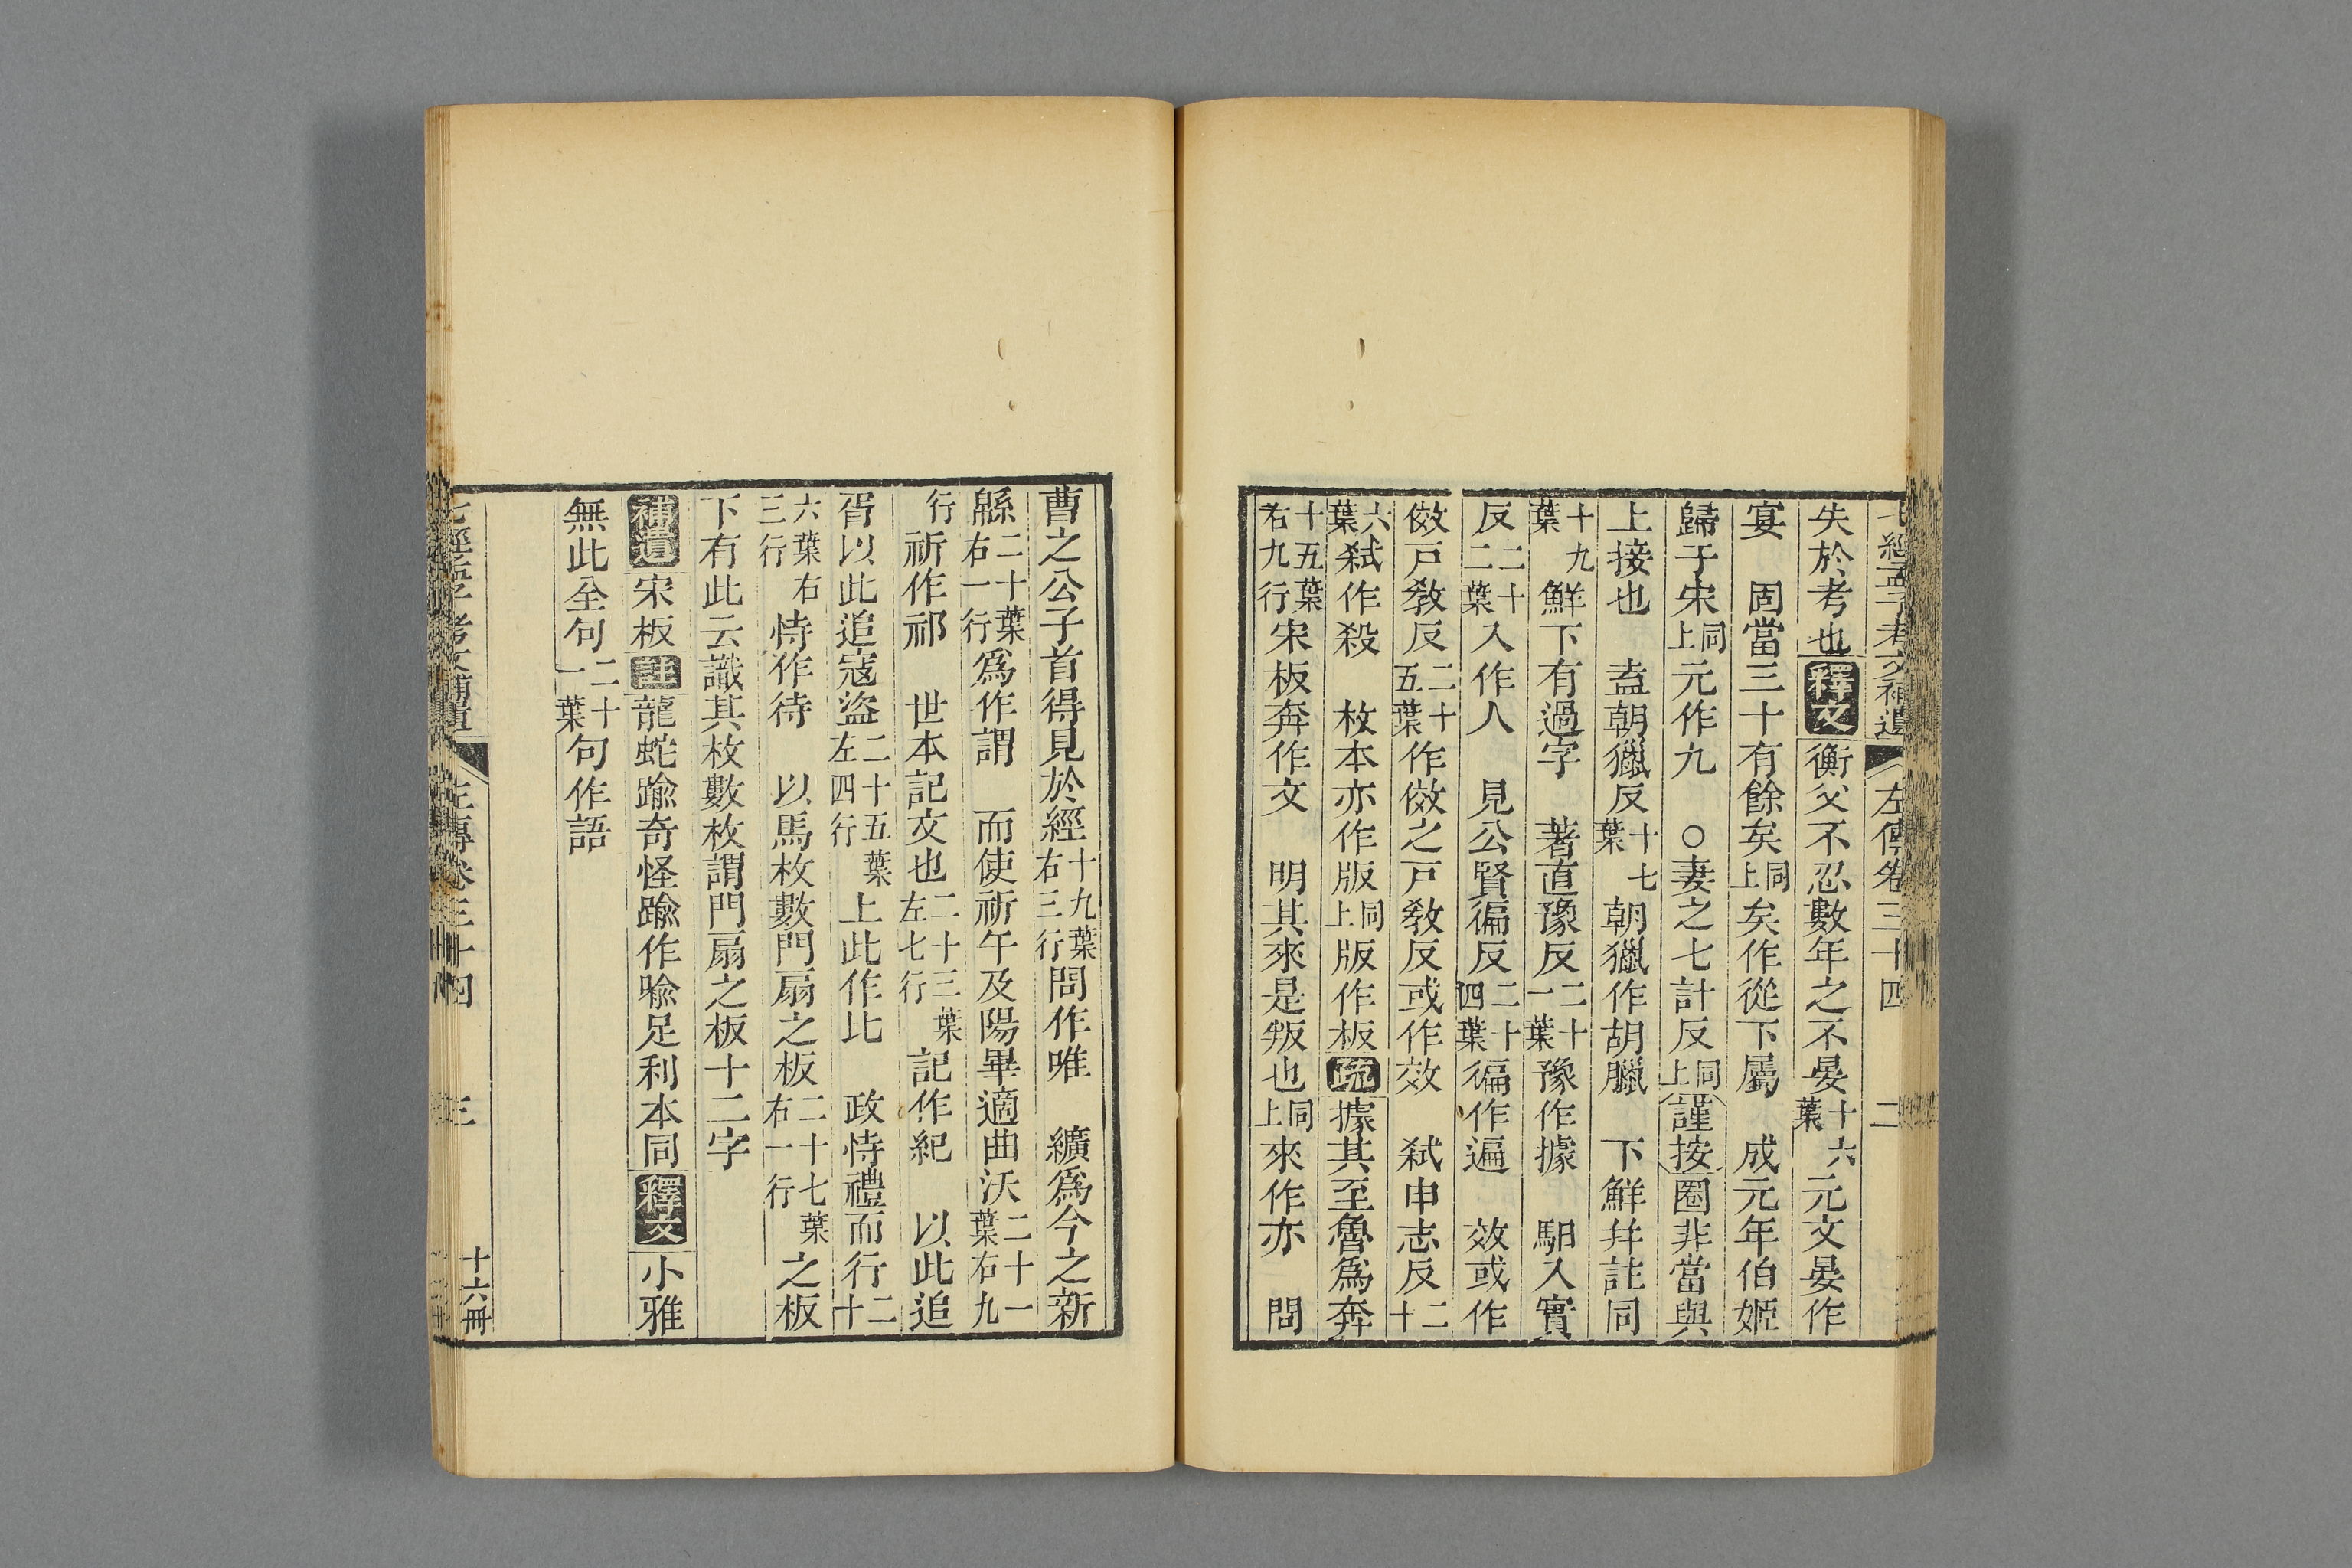 七經孟子考文補遺 左傳卷三十四 二
失於考也釋文衡父不忍數年之不晏十六葉元文晏作
宴 固當三十有餘矣同上矣作從下屬 成元年伯姬
歸于宋同上元作九 ○妻之七計反同上謹按圈非當與
上接也 盍朝獵反十七葉朝獵作胡臘 下鮮幷註同
十九葉鮮下有過字 著直豫反二十一葉豫作據 馹入實
反二十二葉入作人 見公賢徧反二十四葉徧作遍 效或作
傚戸教反二十五葉作傚之戸教反或作效 弑申志反二十
六葉弑作殺 枚本亦作版同上版作板疏據其至魯爲奔
十五葉右九行宋板奔作文 明其來是叛也同上來作亦 問
曹之公子首得見於經十九葉右三行問作唯 纊爲今之新
緜二十葉右一行爲作謂 而使祈午及陽畢適曲沃二十一葉右九
行祈作祁 世本記文也二十三葉左七行記作紀 以此追
胥以此追寇盜二十五葉左四行上此作比 政恃禮而行二十
六葉右三行恃作待 以馬枚數門扇之板二十七葉右一行之板
下有此云識其枚數枚謂門扇之板十二字
補遺宋板註龍蛇踰奇怪踰作喩足利本同釋文小雅
無此全句二十一葉句作語
七經孟子考文補遺 左傳卷三十四 三 十六冊